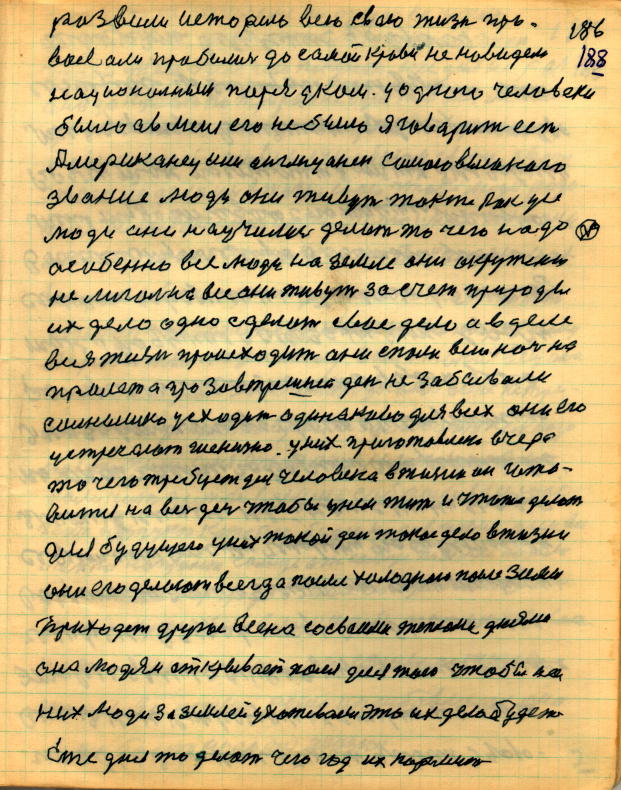 развили историю всю свою жизн про- 186
воевали пробилися до самой крови не новидели 188
национальным порядком. у одного человека
было а в меня его не было Я говорит есп
Американец или англичанен самого высокого
звание люди они живут также как уse
люди они научилис делат то чего надо
особенно все люди на земле они окружени
не легално все они живут за счет природы
их дело одно сделат свое дело а в деле
вся жизн происходит они спали всю ноч на
пролет а про завтрешней ден не забывали
солнышко усходит одинаково для всех они его
устречают женено. у них приготовлено вчера
то чего требует для человека в жизни он гото-
вится на вес ден чтобы унем жит и чтото делат
для будущего уних такой ден такое дело в жизни
они его делают всегда после холодного поле зими
приходет другое весна сосвоими тепломи днями
она людям открывает поля для того чтобы на
них люди за землей ухаживали это их дело будет
Еще дня то делат чего год их кормит